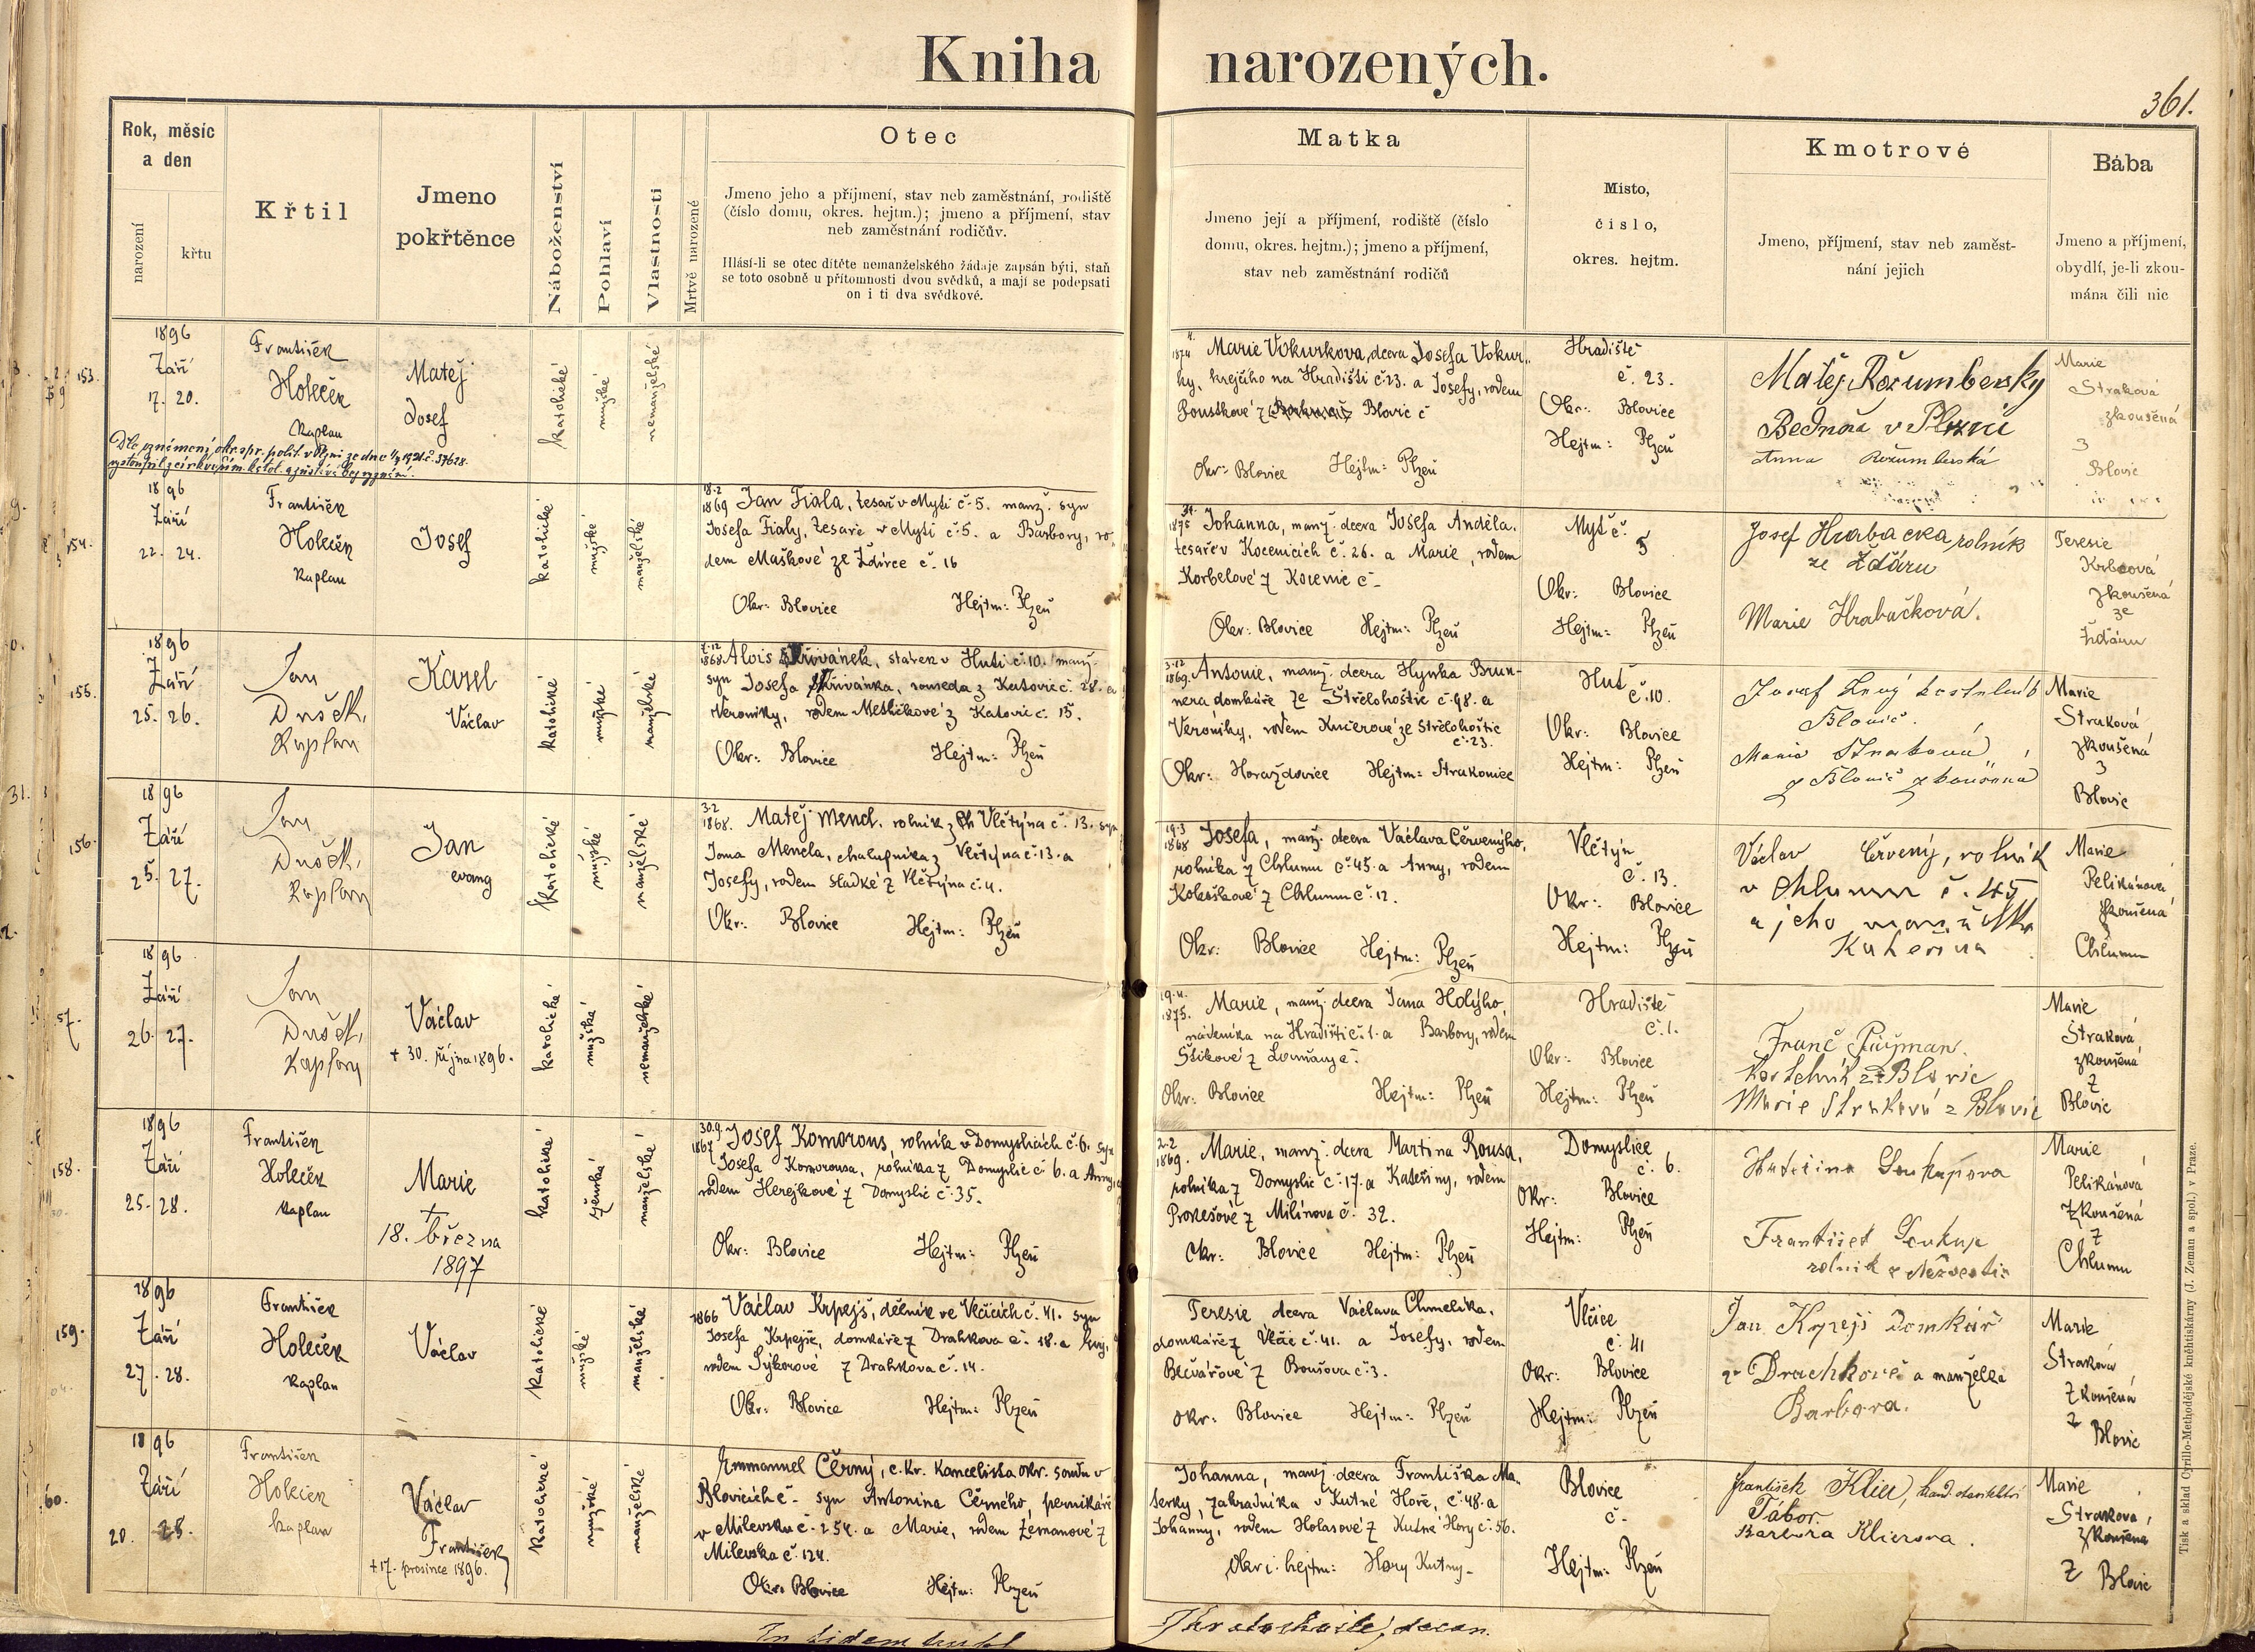 Kniha narozených.
361.
Rok, měsíc
a den
narození
křtu
Křtil
Jmeno
pokřtěnce
Náboženství
Pohlaví
Vlastnosti
Mrtvě narozené
Otec
Jmeno jeho a příjmení, stav neb zaměstnání, rodiště
(číslo domu, okres. hejtm.); jmeno a příjmení, stav
neb zaměstnání rodičův.
Hlásí-li se otec dítěte nemanželského žádaje zapsán býti, staň
se toto osobně u přítomnosti dvou svědků, a mají se podepsati
on i ti dva svědkové.
Matka
Jmeno její a příjmení, rodiště (číslo
domu, okres. hejtm.); jmeno a příjmení,
stav neb zaměstnání rodičů
Místo,
číslo,
okres. hejtm.
Kmotrové
Jmeno, příjmení, stav neb zaměst-
nání jejich
Bába
Jmeno a příjmení,
obydlí, je-li zkou-
mána čili nic
153.
1896
Září
17. 20.
František
Holeček
Kaplan
Matěj
Josef
katolické
mužské
nemanželské
1874 Marie Vokurkova, dcera Josefa Vokur-
ky, krejčího na Hradišti č. 23. a Josefy, rodem
Boustkové z Blovic č
Okr: Blovice Hejtm: Plzeň
Hradiště
č. 23.
Okr: Blovice
Hejtm: Plzeň
Matěj Rozumbersky
Bednář v Plzni
Anna Rozumberská
Marie
Straková
zkoušená
z
Blovic
154.
1896
Září
22. 24.
František
Holeček
Kaplan
Josef
katolické
mužské
manželské
18.2
1869 Jan Fiala, tesař v Myti č. 5. manž. syn
Josefa Fialy, tesaře v Myti č. 5. a Barbory, ro-
dem Maškové ze Ždírce č. 16
Okr: Blovice Hejtm: Plzeň
1875 Johanna, manž. dcera Josefa Anděla,
tesaře v Kocenicích č. 26. a Marie, rodem
Korbelové z Kocenic č -
Okr: Blovice Hejtm: Plzeň
Myť č.
5
Okr: Blovice
Hejtm: Plzeň
Josef Hrabacka rolník
ze Žďáru
Marie Hrabačková.
Teresie
Krbcová
zkoušená
ze
Žďáru
155.
1896
Září
25. 26.
Jan
Dušek,
Kaplan
Karel
Václav
katolické
mužské
manželské
7.12
1868 Alois Skřivánek, stárek v Huti č. 10. manž.
syn Josefa Skřivánka, souseda z Katovic č. 28. a
Veroniky, rodem Meškové z Katovic č. 15.
Okr: Blovice Hejtm: Plzeň
3.12
1869. Antonie, manž. dcera Hynka Brun-
nera domkáře ze Střelohoštic č. 48. a
Veroniky, rodem Kučerové ze Střelohoštic
č. 23.
Okr: Horažďovice Hejtm: Strakonice
Huť
č. 10.
Okr: Blovice
Hejtm: Plzeň
Blovic.
Marie Straková
z Blovic zkoušená
Marie
Straková
zkoušená
z
Blovic
156.
1896
Září
25. 27.
Jan
Dušek,
Kaplan
Jan
evang
katolické
mužské
manželské
3.2
1868. Matěj Mencl, rolník z Vlčtýna č. 13. syn
Jana Mencla, chalupníka z Vlčtýna č. 13. a
Josefy, rodem Sladké z Vlčtýna č. 4.
Okr: Blovice Hejtm: Plzeň
19.3
1868 Josefa, manž. dcera Václava Červenýho,
rolníka z Chlumu č. 45. a Anny, rodem
Kolaškové z Chlumu č. 12.
Okr: Blovice Hejtm: Plzeň
Vlčtýn
č. 13.
Okr: Blovice
Hejtm: Plzeň
Václav Červený, rolník
v Chlumu č. 45
a jeho manželka
Kateřina
Marie
Pelikánová
zkoušená
z
Chlumu
57.
1896
Září
26. 27.
Jan
Dušek,
Kaplan
Václav
+ 30. října 1896.
katolické
mužské
nemanželské
1875. Marie, manž. dcera Jana Holýho,
nádeníka na Hradišti č. 1. a Barbory, rodem
Šlikové z Louňan č.
Okr: Blovice Hejtm: Plzeň
Hradiště
č. 1.
Okr: Blovice
Hejtm: Plzeň
Kostelník z Blovic
Marie Straková z Blovic
Marie
Straková,
zkoušená
z
Blovic
158.
1896
Září
25. 28.
František
Holeček
Kaplan
Marie
+
18. března
1897
katolické
ženské
manželské
30.9.
1867 Josef Komorous, rolník v Domyslicích č. 6. syn
Josefa Komorousa, rolníka z Domyslic č. 6. a Anny,
rodem Herejkové z Domyslic č. 35.
Okr: Blovice Hejtm: Plzeň
2.2
1869. Marie, manž. dcera Martina Rousa,
rolníka z Domyslic č. 17. a Kateřiny, rodem
Prokešové z Milínova č. 32.
Okr: Blovice Hejtm: Plzeň
Domyslice
č. 6.
Okr: Blovice
Hejtm: Plzeň
Kateřina Soukupova
František Soukup
rolník z Nezvěstic
Marie
Pelikánová
zkoušená
z
Chlumu
159.
1896
Září
27. 28.
František
Holeček
Kaplan
Václav
katolické
mužské
manželské
1866 Václav Krpejš, dělník ve Vlčicích č. 41. syn
Josefa Krpejše, domkáře z Drahkova č. 18. a
rodem Sýkorové z Drahkova č. 14.
Okr: Blovice Hejtm: Plzeň
Teresie dcera Václava Chmelíka,
domkáře z Vlčic č. 41. a Josefy, rodem
Bečvářové z Boušova č. 3.
Okr: Blovice Hejtm: Plzeň
Vlčice
č. 41
Okr: Blovice
Hejtm: Plzeň
Jan Krpejš Domkář
z Drachkova a manželka
Barbora.
Marie
Straková
zkoušená
z
Blovic
60.
1896
Září
20. 28.
František
Holeček
kaplan
Václav
František
+ 17. prosince 1896.
katolické
mužské
manželské
Emmanuel Černý, c. kr. kancelista okr. soudu v
Blovicích č. - syn Antonína Černého, perníkáře
v Milevsku č. 254. a Marie, rodem Zemanové z
Milevska č. 124.
Okr: Blovice Hejtm: Plzeň
Johanna, manž. dcera Františka Ma-
terky, zahradníka v Kutné Hoře, č. 48. a
Johanny, rodem Holasové z Kutné Hory č. 56.
Okr i. hejtm: Hory Kutny -
Blovice
č. -
Hejtm: Plzeň
František Klier,
Tábor.
Barbora Klierova.
Marie
Straková,
zkoušená
z Blovic
Tisk a sklad Cyrillo-Methodějské knihtiskárny (J. Zeman a spol.) v Praze.